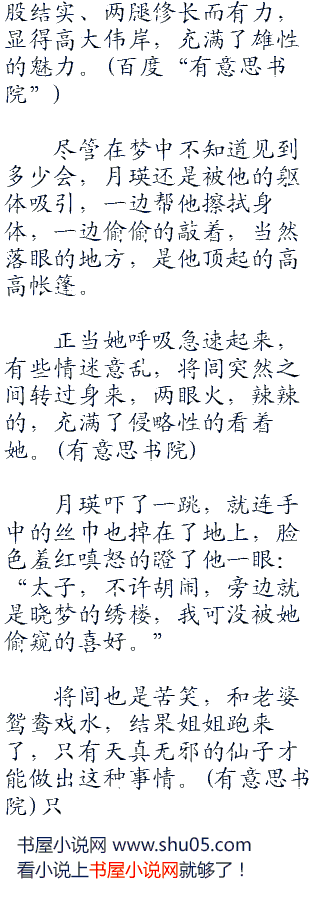 股结实、两腿修长而有力，
显得高大伟岸，充满了雄性
的魅力。(百度“有意思书
院”)
尽管在梦中不知道见到
多少会，月瑛还是被他的躯
体吸引，一边帮他擦拭身
体，一边偷偷的敲着，当然
落眼的地方，是他顶起的高
高帐篷。
正当她呼吸急速起来，
有些情迷意乱，将闾突然之
间转过身来，两眼火，辣辣
的，充满了侵略性的看着
她。(有意思书院)
月瑛吓了一跳，就连手
中的丝巾也掉在了地上，脸
色羞红嗔怒的瞪了他一眼：
“太子，不许胡闹，旁边就
是晓梦的绣楼，我可没被她
偷窥的喜好。”
将闾也是苦笑，和老婆
鸳鸯戏水，结果姐姐跑来
了，只有天真无邪的仙子才
能做出这种事情。(有意思书
院)只
书屋小说网 www.shu05.com
看小说上书屋小说网就够了！